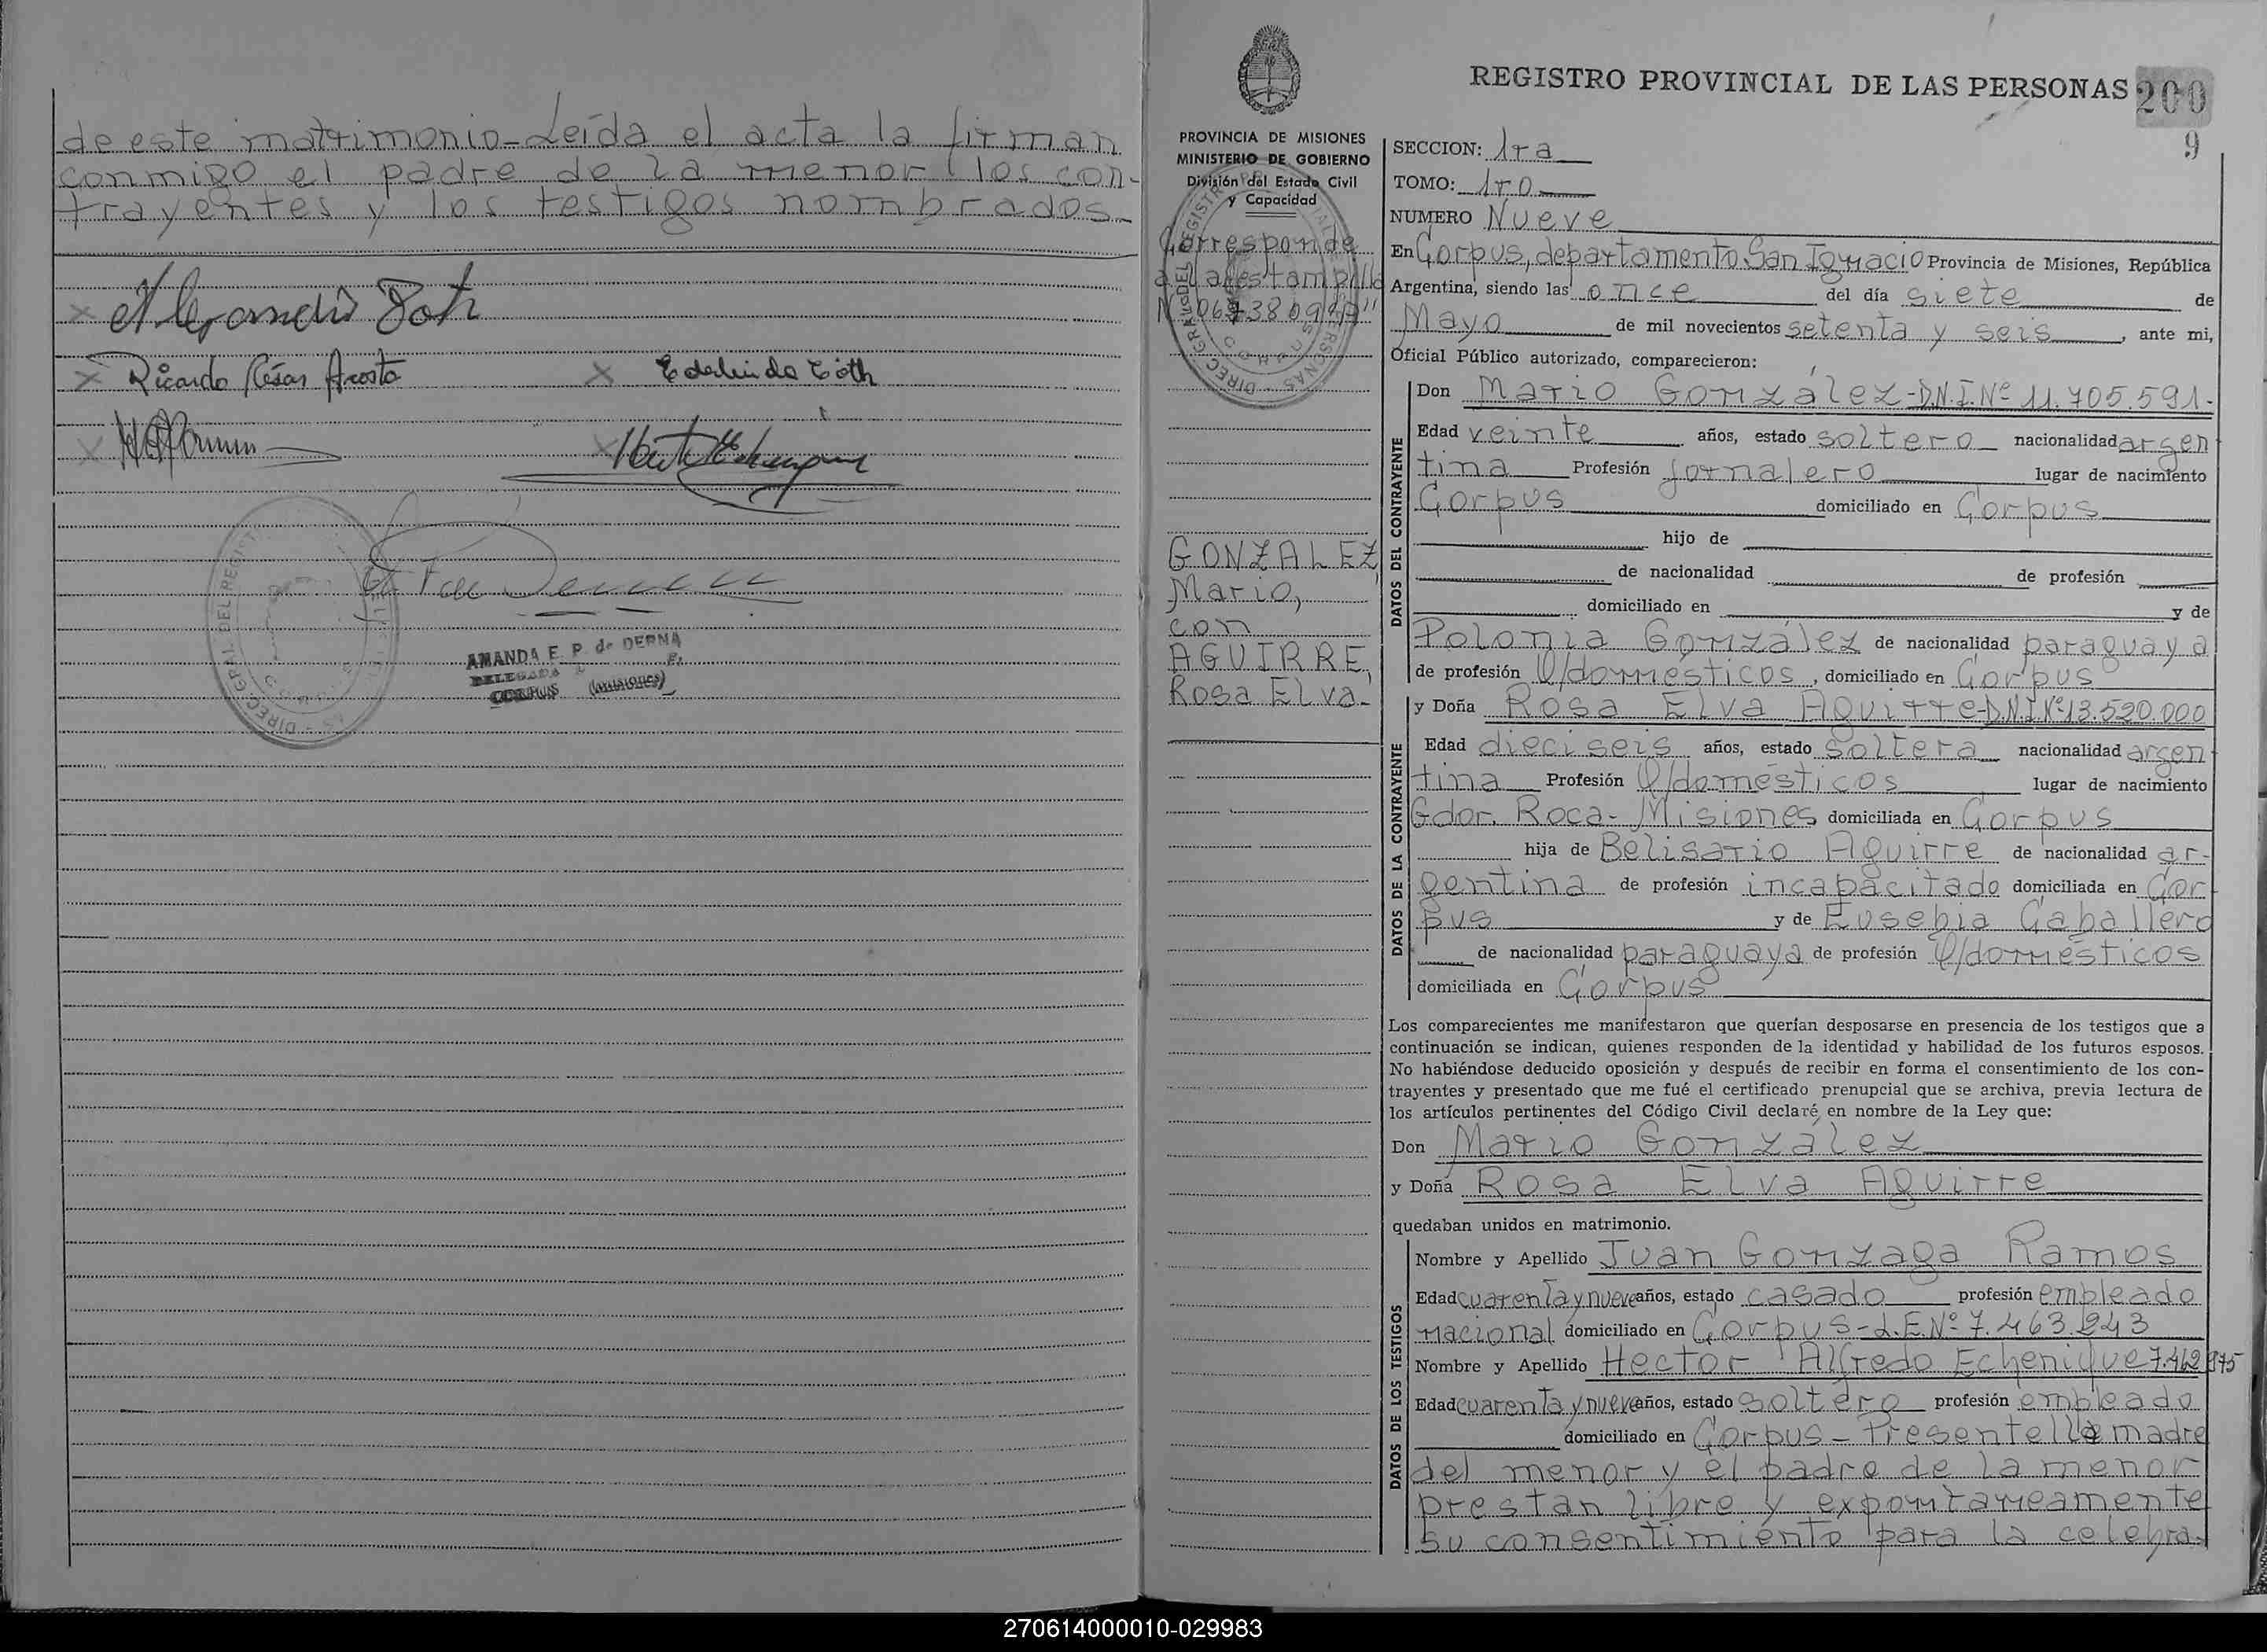 de este matrimonio-Leída el acta la firman
conmigo el padre de la menor los con-
trayentes y los testigos nombrados-
Ricardo César Acosta
Edelinda Tóth
AMANDA E. P. de DERNA
DELEGADA
CORPUS (MISIONES)
REGISTRO PROVINCIAL DE LAS PERSONAS 200
9
PROVINCIA DE MISIONES
MINISTERIO DE GOBIERNO
División del Estado Civil
y Capacidad
Corresponde
a la estampilla
GONZALEZ
Mario,
con
AGUIRRE,
Rosa Elva-
SECCION: 1ra
TOMO: 1ro
NUMERO Nueve
En Corpus, departamento San Ignacio Provincia de Misiones, República
Argentina, siendo las once del día siete de
Mayo de mil novecientos setenta y seis, ante mi,
Oficial Público autorizado, comparecieron:
DATOS DEL CONTRAYENTE
Don Mario González-D.N.I.Nº 11.705.591-
Edad veinte años, estado soltero nacionalidad argen
tina Profesión jornalero lugar de nacimiento
Corpus domiciliado en Corpus
hijo de
de nacionalidad de profesión
domiciliado en y de
Polonia González de nacionalidad paraguaya
de profesión Q/domésticos, domiciliado en Corpus
DATOS DE LA CONTRAYENTE
y Doña Rosa Elva Aguirre-D.N.I.Nº13.520.000
Edad dieciseis años, estado soltera nacionalidad argen
tina Profesión Q/domésticos lugar de nacimiento
Gdor. Roca-Misiones domiciliada en Corpus
hija de Belisario Aguirre de nacionalidad ar-
gentina de profesión incapacitado domiciliada en Cor
pus y de Eusebia Caballero
de nacionalidad paraguaya de profesión Q/domésticos
domiciliada en Corpus
Los comparecientes me manifestaron que querían desposarse en presencia de los testigos que a
continuación se indican, quienes responden de la identidad y habilidad de los futuros esposos.
No habiéndose deducido oposición y después de recibir en forma el consentimiento de los con-
trayentes y presentado que me fué el certificado prenupcial que se archiva, previa lectura de
los artículos pertinentes del Código Civil declaré en nombre de la Ley que:
Don Mario González
y Doña Rosa Elva Aguirre
quedaban unidos en matrimonio.
DATOS DE LOS TESTIGOS
Nombre y Apellido Juan Gonzaga Ramos
Edad cuarenta y nueve años, estado casado profesión empleado
nacional domiciliado en Corpus-L.E.Nº 7.463.243
Nombre y Apellido Hector Alfredo Echenique 7.462.975
Edad cuarenta y nueve años, estado soltero profesión empleado
domiciliado en Corpus-Presente la madre
del menor y el padre de la menor
prestan libre y expontaneamente
su consentimiento para la celebra-
270614000010-029983